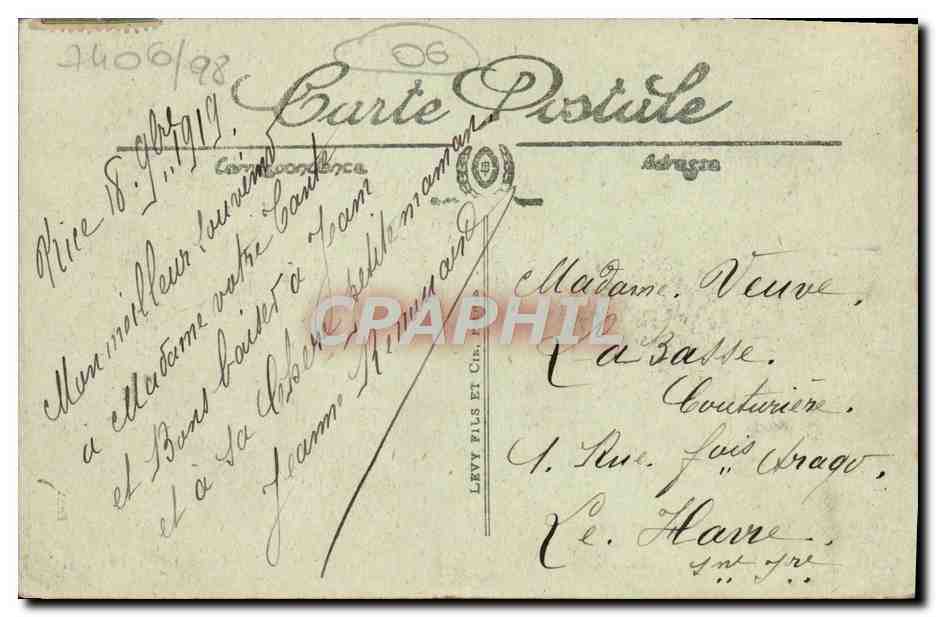 7406/98
06
Carte Postale
Correspondance
Adresse
Nice 18. 9bre 1919.
Mon meilleur Souvenir
à Madame votre Tante
et Bons baiser à Jean
et à sa Chère petite maman.
Jeanne
CPAPHIL
LEVY FILS ET CIE,
Madame. Veuve.
La Basse.
Couturière.
1. Rue. fois Arago.
Le. Havre.
Sne Ire